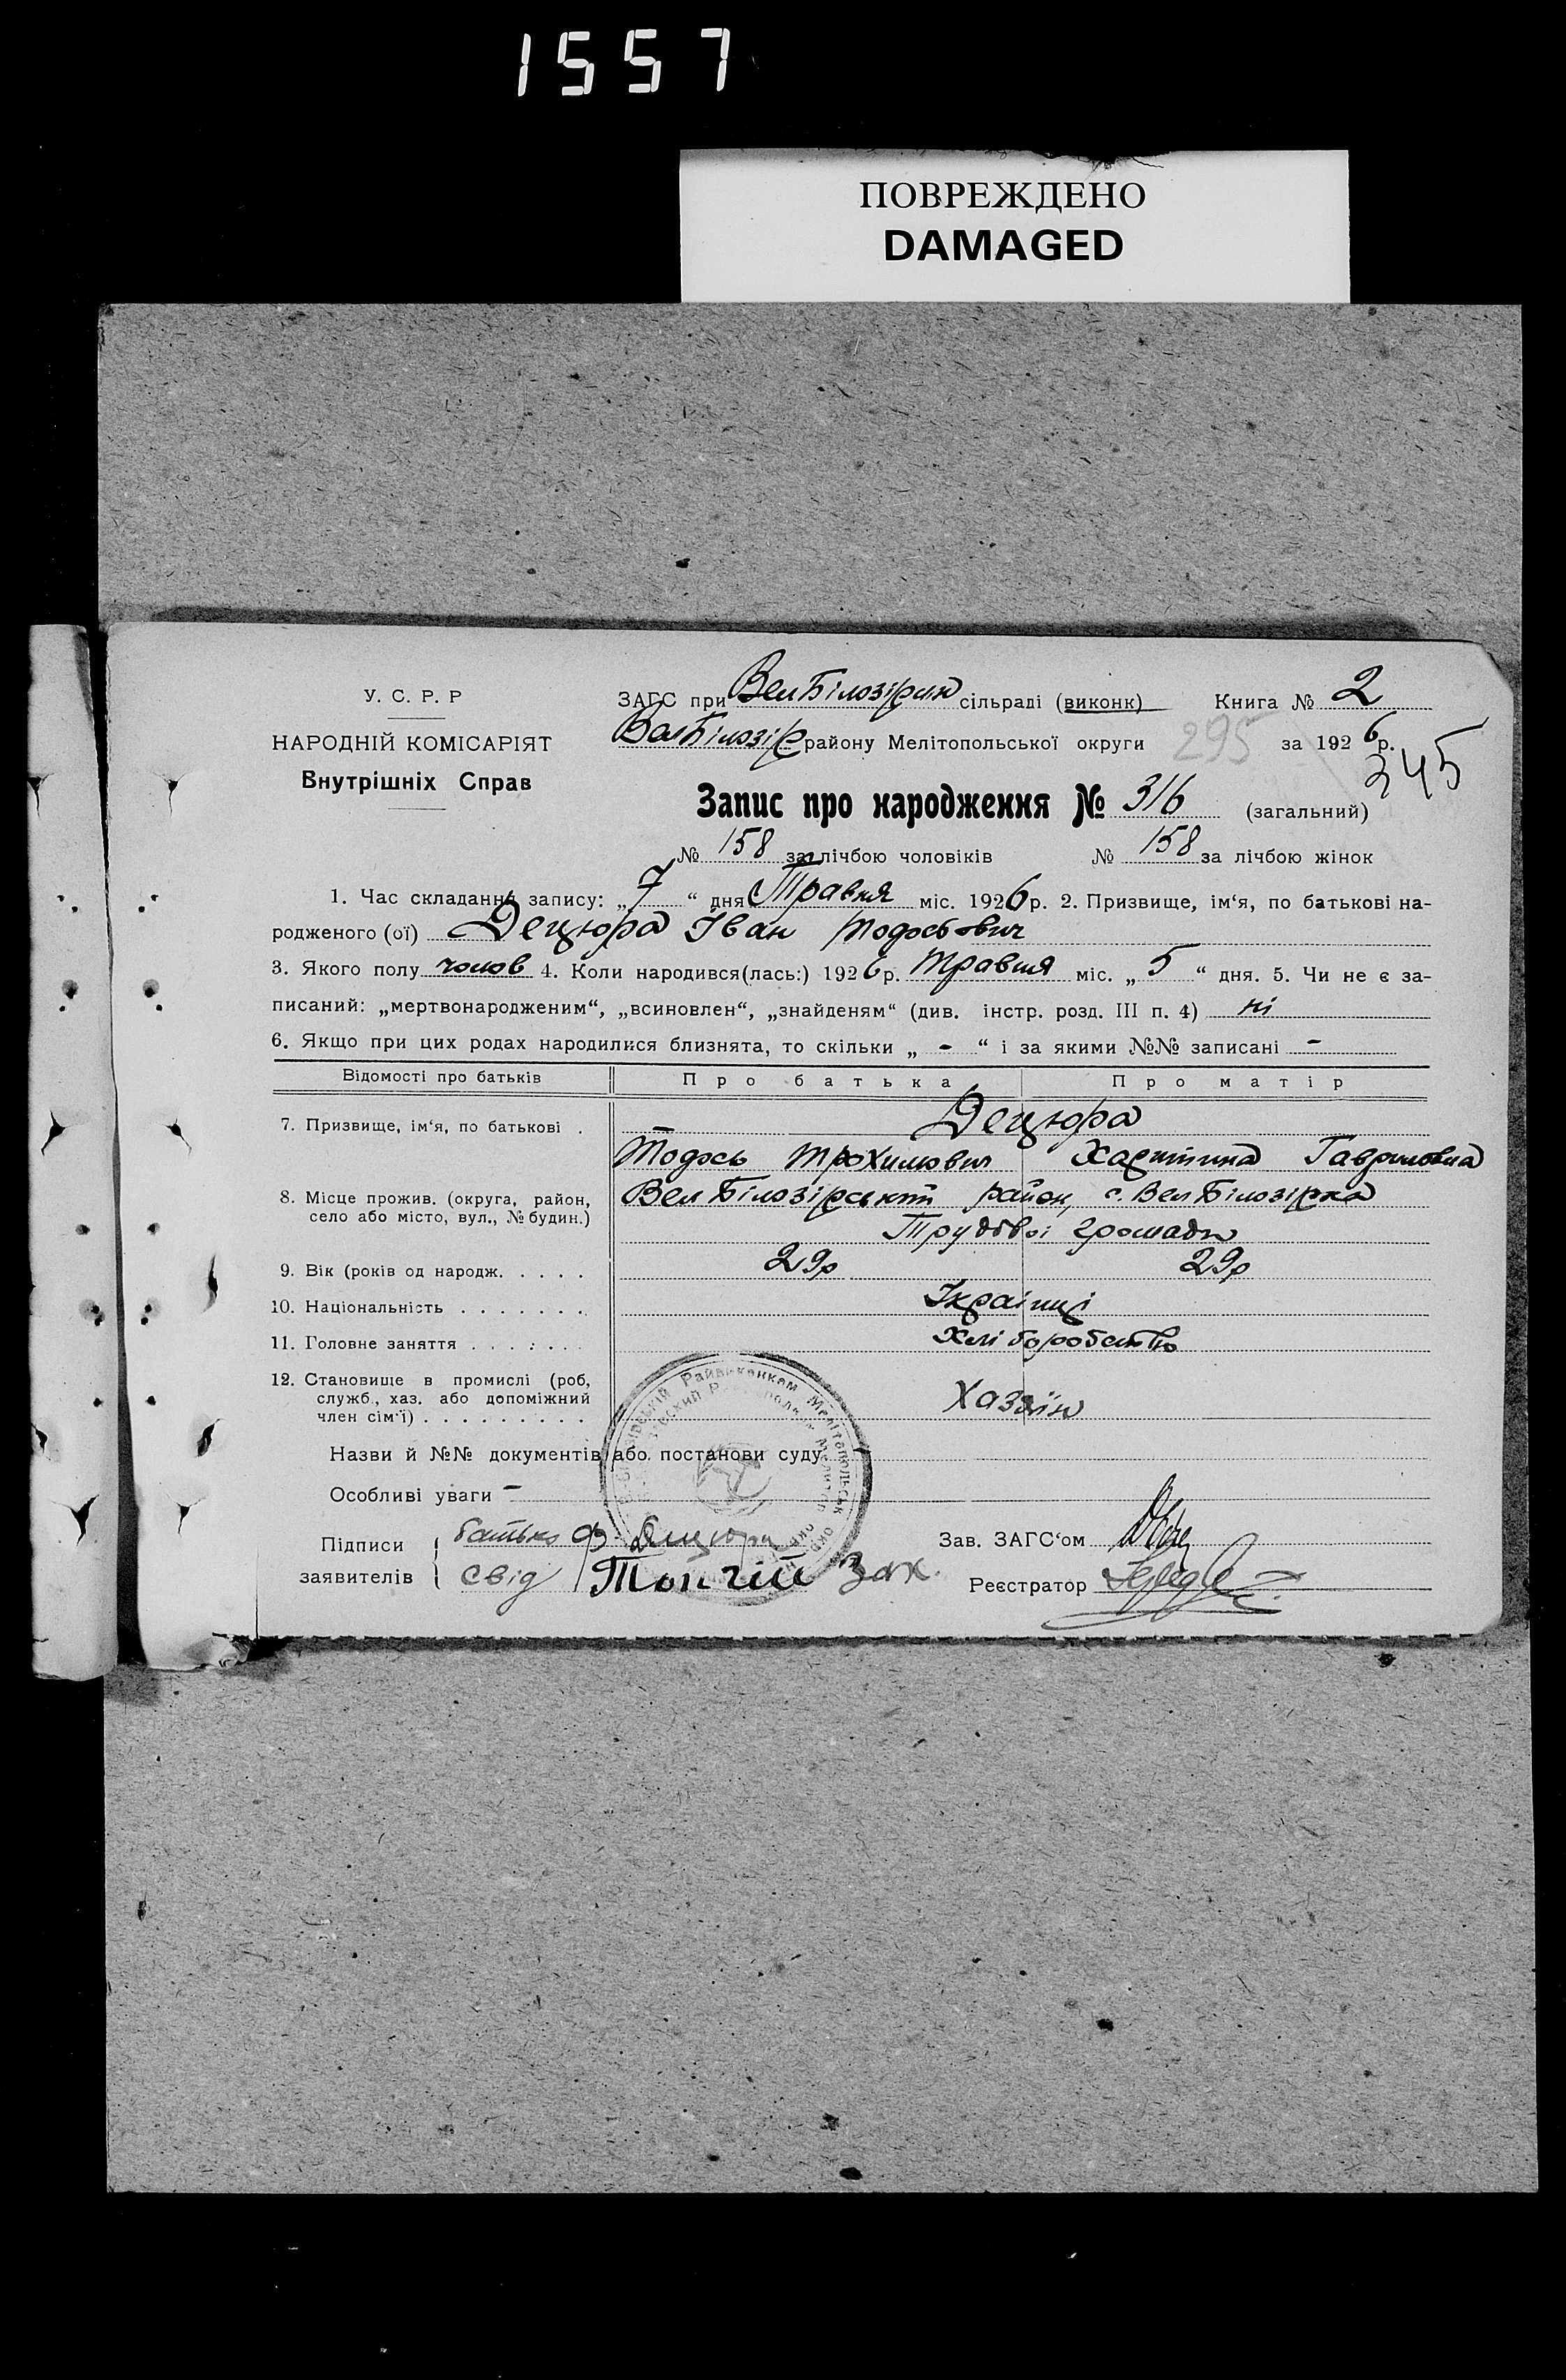 1557
ПОВРЕЖДЕНО
DAMAGED
У. С. Р. Р
НАРОДНІЙ КОМІСАРІЯТ
Внутрішніх Справ
ЗАГС при Вел Білозірск сільраді (виконк) Книга № 2
Вел Білозір району Мелітопольської округи 295 за 1926 р.
345
Запис про народження № 316 (загальний)
№ 158 за лічбою чоловіків № 158 за лічбою жінок
1. Час складання запису: „7“ дня Травня міс. 1926 р. 2. Призвище, ім‘я, по батькові на-
родженого (ої) Децюра Іван Тодосьович
3. Якого полу чолов 4. Коли народився(лась:) 1926 р. Травня міс. „5“ дня. 5. Чи не є за-
писаний: „мертвонародженим“, „всиновлен“, „знайденям“ (див. інстр. розд. III п. 4) ні
6. Якщо при цих родах народилися близнята, то скільки „ - “ і за якими №№ записані -
Відомості про батьків Про батька Про матір
7. Призвище, ім‘я, по батькові . Децюра
Тодось Трохимович Харитина Гавриловна
8. Місце прожив. (округа, район, село або місто, вул., № будин.) Вел Білозірський район, с. Вел Білозірка
Трудової громади
9. Вік (років од народж. . . . . 29р 29р
10. Національність . . . . . . . Українці
11. Головне заняття . . . . . . . Хліборобство
12. Становище в промислі (роб,
служб., хаз. або допоміжний
член сім‘ї) . . . . . . . . . Хазяїн
Назви й №№ документів або постанови суду
Особливі уваги -
Підписи заявителів батько Ф Децюра
свід Топчій Зах.
Зав. ЗАГС‘ом
Реєстратор